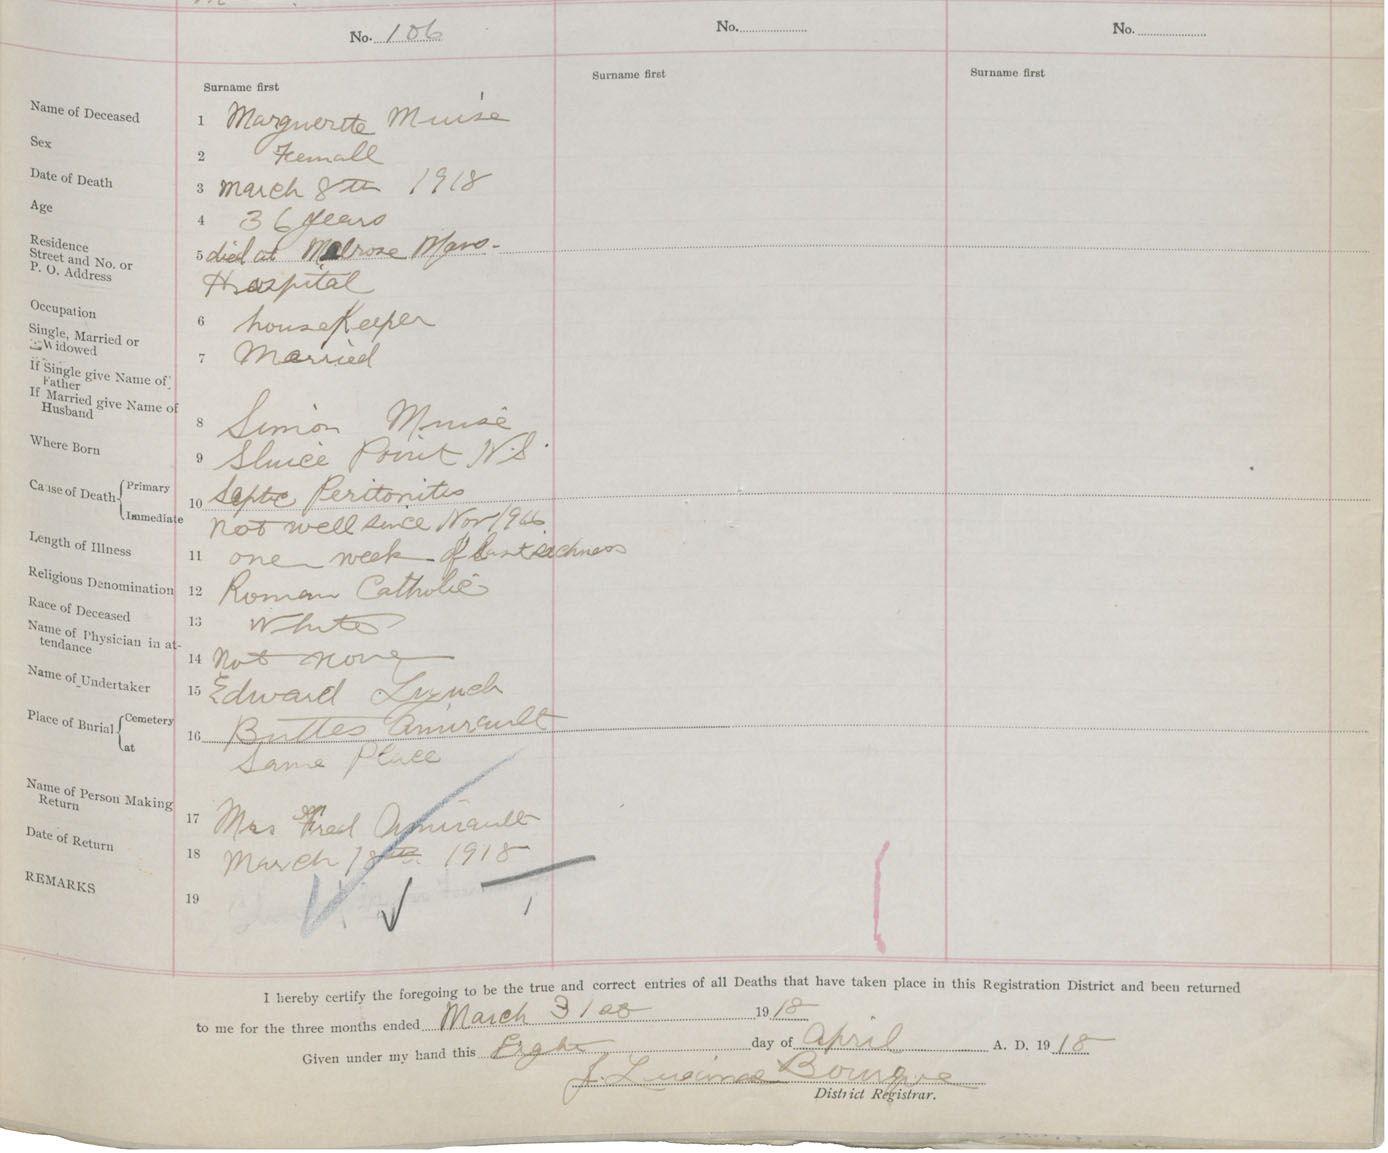 No. 106 No. No.
Surname first Surname first Surname first
Name of Deceased 1 Marguerite Muise
Sex 2 Femall
Date of Death 3 March 8th 1918
Age 4 36 years
Residence
Street and No. or 5 died at Melrose Mass.
P. O. Address Hospital
Occupation 6 houseKeeper
Single, Married or
Widowed 7 Married
If Single give Name of
Father
If Married give Name of
Husband 8 Simon Muise
Where Born 9 Sluice Point N.S.
Cause of Death Primary 10 Septic Peritonitis
Immediate not well since Nov
Length of Illness 11 one week of last sickness
Religious Denomination 12 Roman Catholic
Race of Deceased 13 White
Name of Physician in at-
tendance 14 Not none
Name of Undertaker 15 Edward Lynch
Place of Burial Cemetery 16 Buttes Amirault
at Same Place
Name of Person Making
Return 17 Mrs Fred Amirault
Date of Return 18 March 18th 1918
REMARKS 19
I hereby certify the foregoing to be the true and correct entries of all Deaths that have taken place in this Registration District and been returned
to me for the three months ended March 31st 1918
Given under my hand this day of April A. D. 1918
J. Bourque
District Registrar.